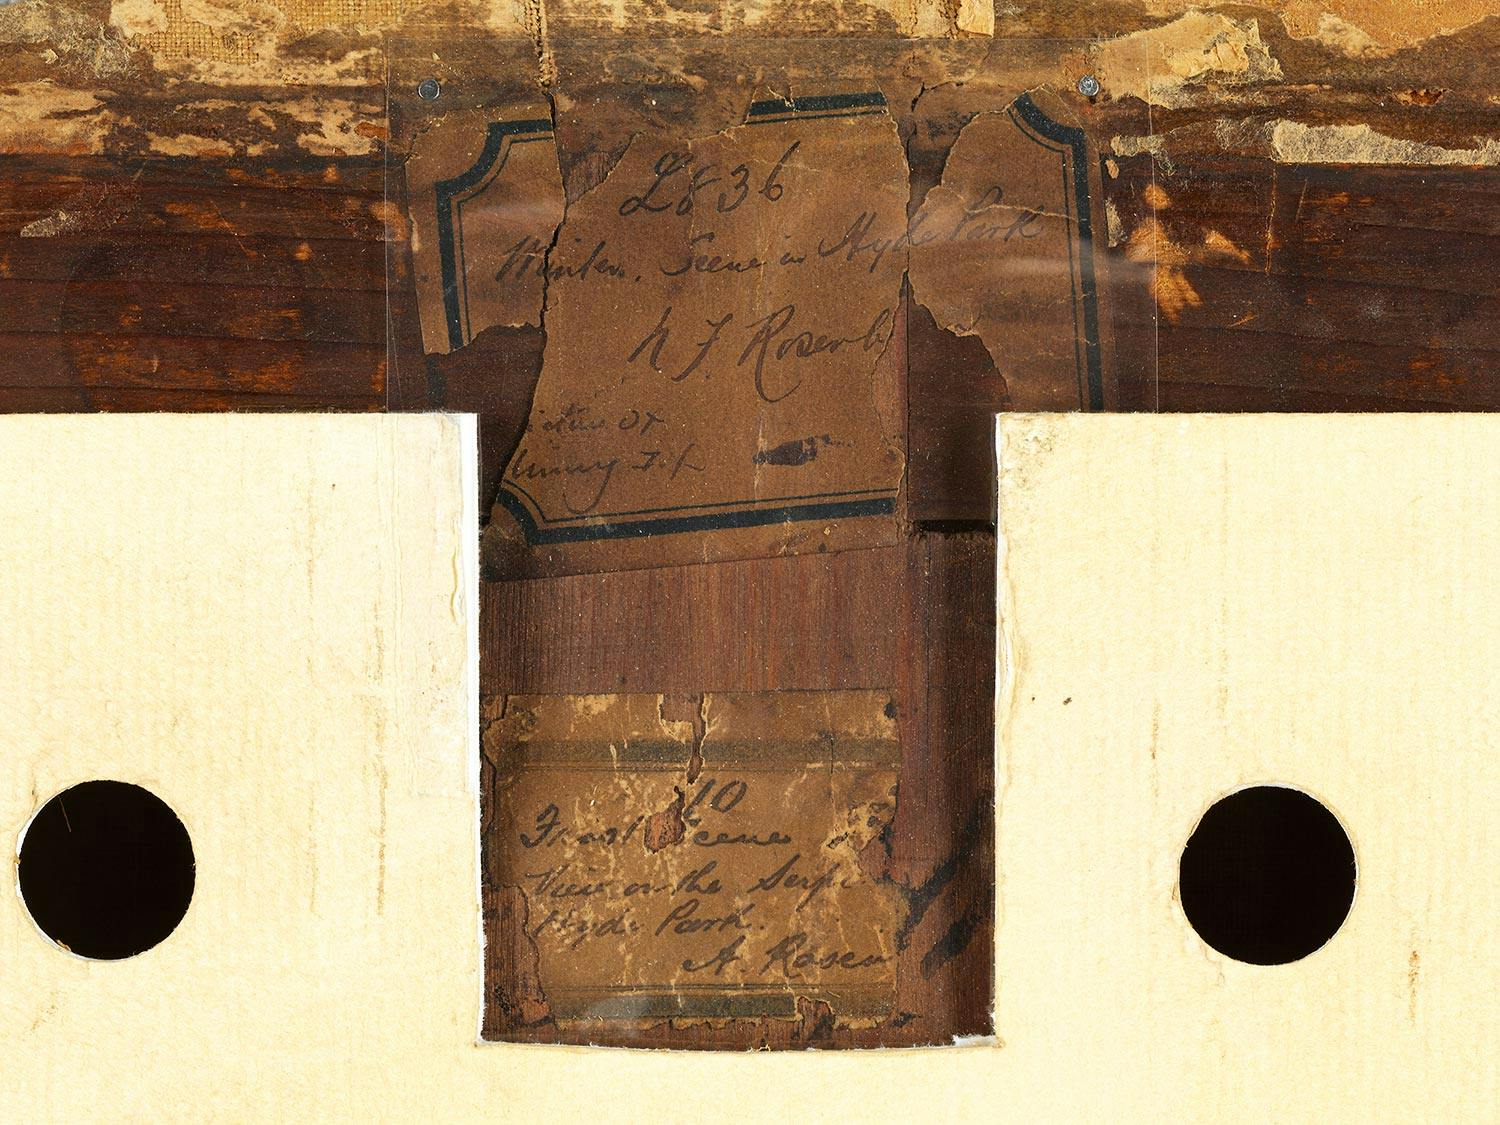 L836
Winter. Scene in Hyde Park
N F Rosenb
10
Frost Scene
View on the Serpe
Hyde Park.
A. Rosen